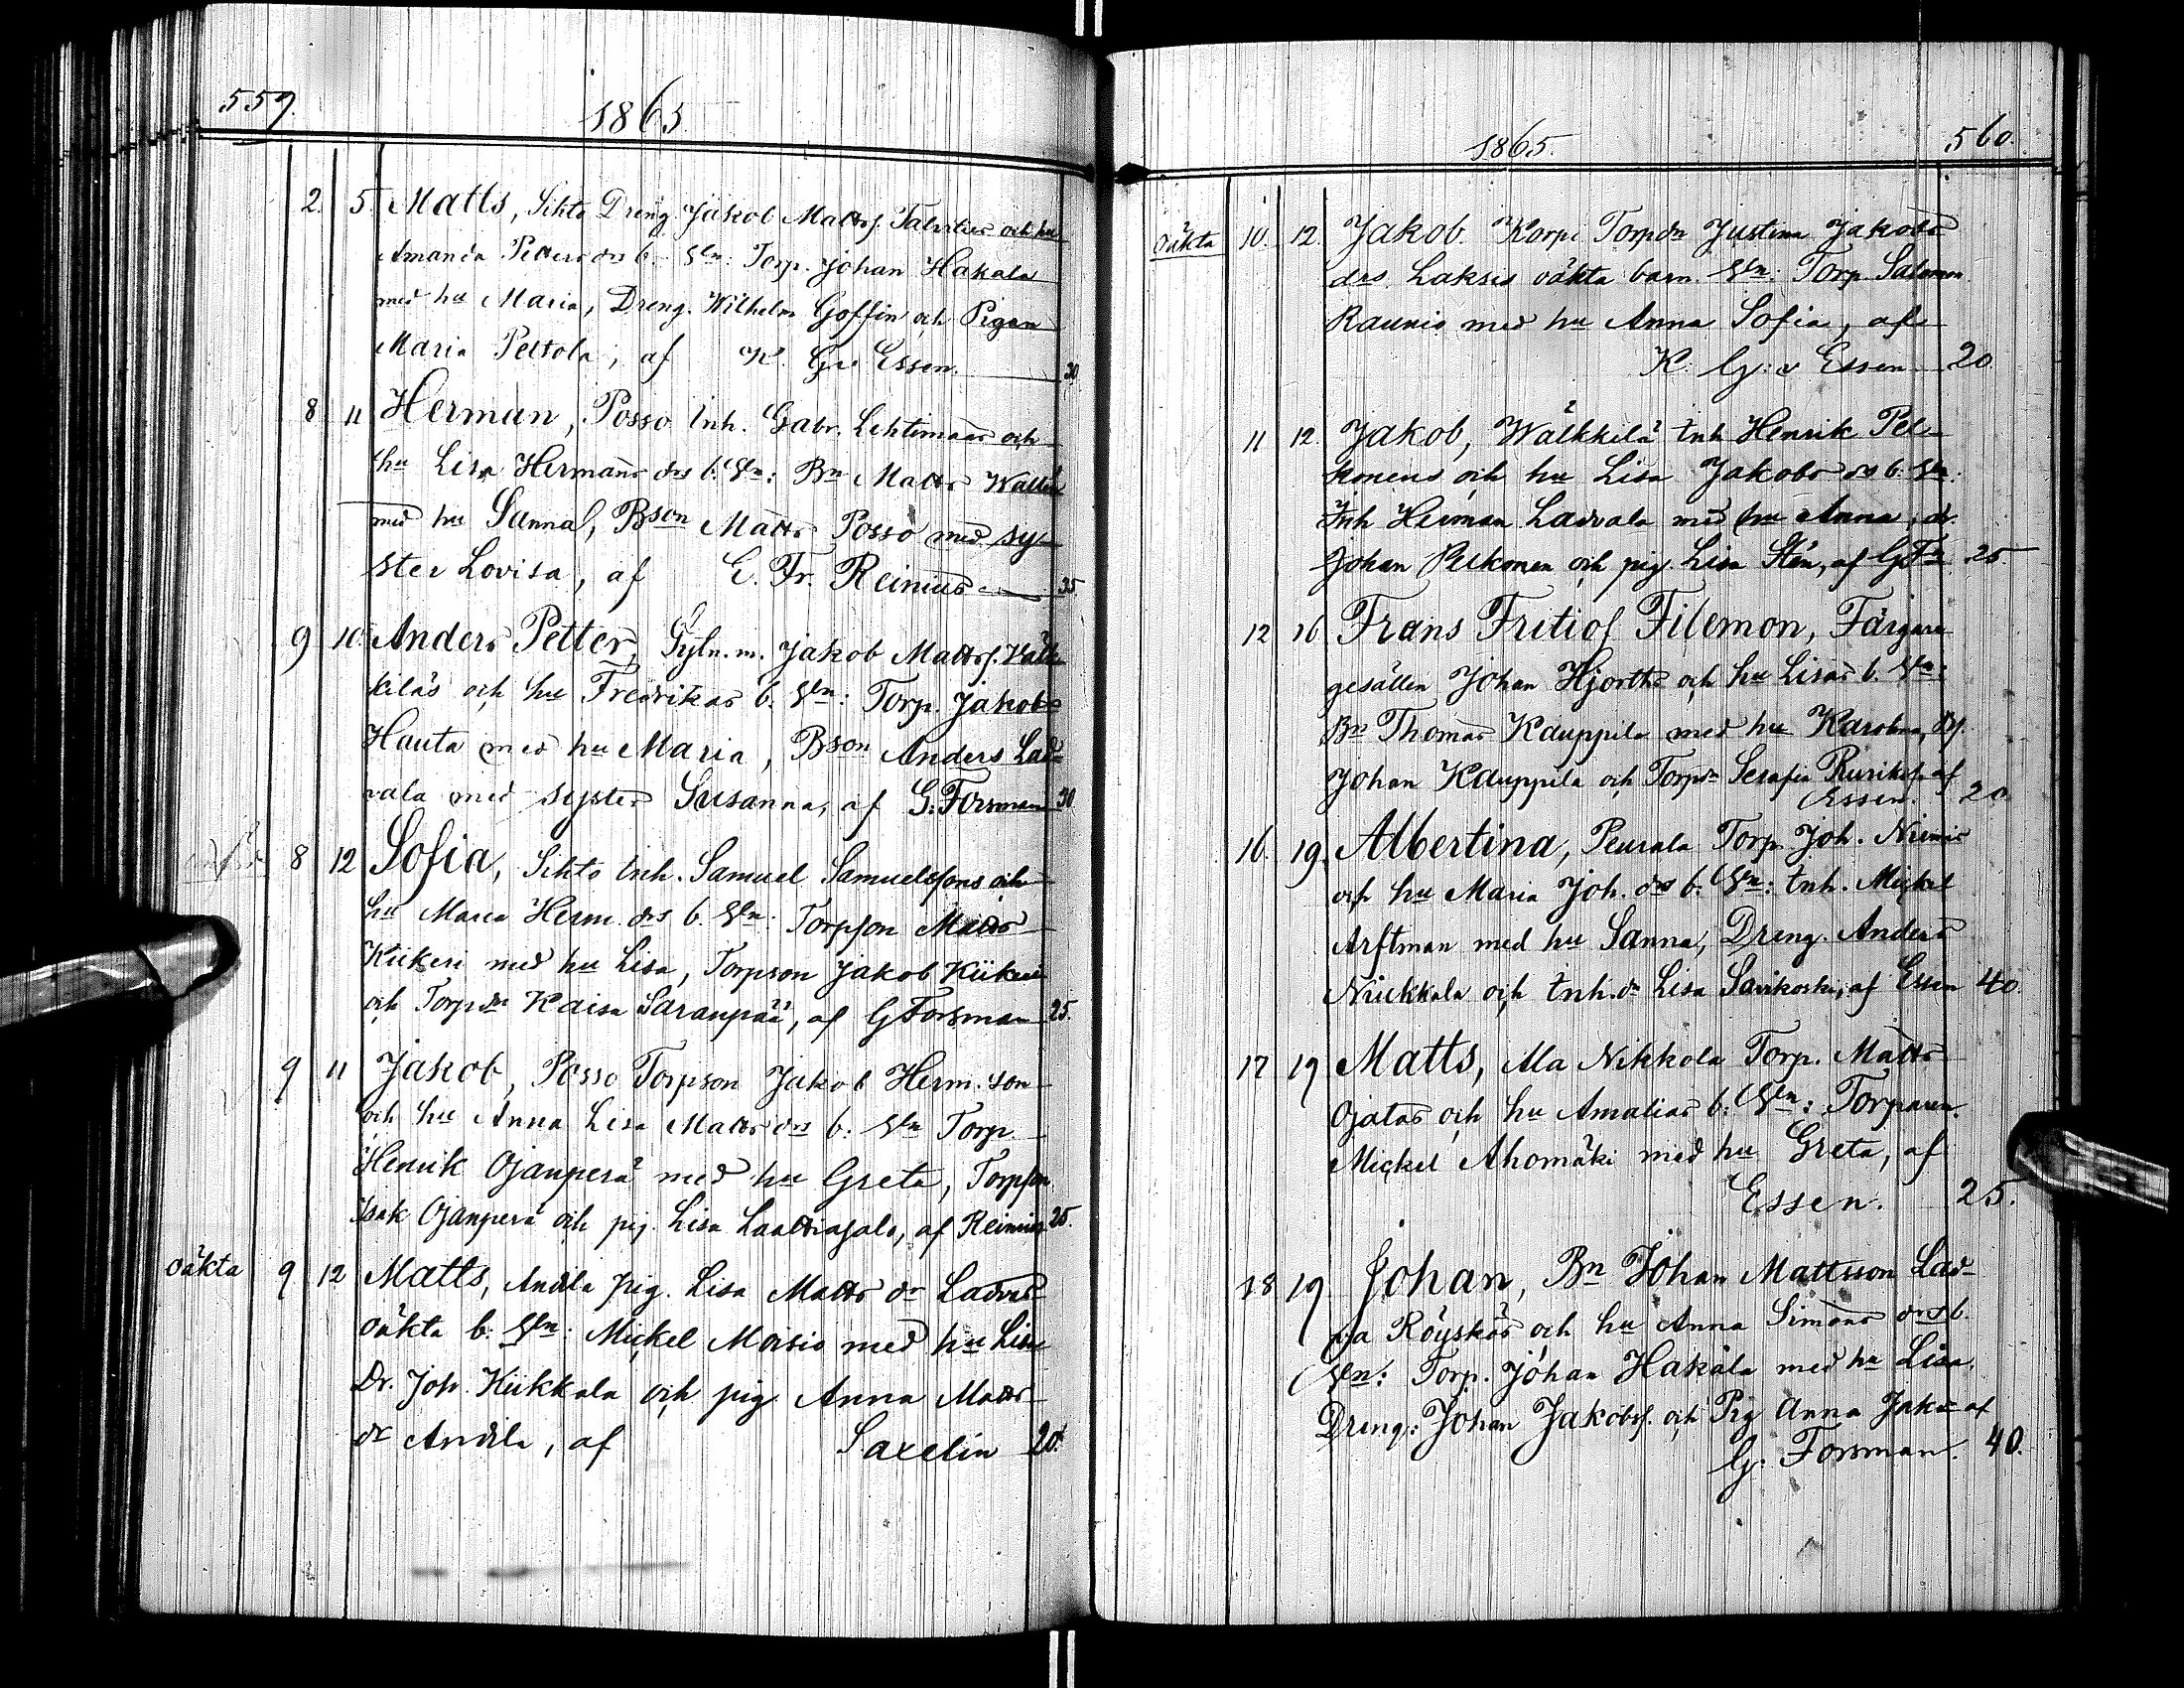 559.
1865
2. 5. Matts, Sihto Dreng. Jakob Mattsf. Talvities och hu
Amanda Petters drs b. Vln: Torp. Johan Hakala
med hu Maria, Dreng. Wilhelm Goffin och Pigan
Maria Peltola, af K. G. v Essen. 30
8 11 Herman, Posso Inh. Gabr. Lehtimäis och
hu Lisa Hermans drs b. Vln: Bn Matts
med hu Sanna, Bson Matts Posso med sy-
ster Lovisa, af E. Fr. Reinius 35.
9 10. Anders Petter, Jakob Mattsf. Välk-
kiläs och hu Fredrikas b. Vln: Torp. Jakob
Hauta med hu Maria, Bson Anders Lad-
vala med syster Susanna, af G. Forsman 30
8 12 Sofia, Sihto Inh. Samuel Samuelsfons och
hu Maria Herm. drs b. Vln: Torpfon Matts
Kiikeri med hu Lisa, Torpson Jakob Kiikeri
och Torpdn Kaisa Saranpää, af G Forsman 25.
9 11 Jakob, Posso Torpson Jakob Herm. son
och hu Anna Lisa Matts drs b. Vln Torp.
Henrik Ojanperä med hu Greta, Torpfon
Isak Ojanperä och pig. Lisa af Reinius 25.
oäkta 9 12 Matts, Andila pig. Lisa Matts dr Ladvas
oäkta b. Vln: Mickel Moisio med hu Lisa
Dr. Joh. Kiikkala och pig Anna Matts
dr Andila, af Saxelin 20.
1865.
560.
oäkta 10. 12. Jakob. Korpi Torpdn Justina Jakobs
drs. Laksis oäkta barn. Vln: Torp Salomon
Raunio med hu Anna Sofia, af
K. G: v Essen 20.
11 12. Jakob, Wälkkilä Inh Henrik Pel-
konens och hu Lisa Jakobs drs b. Vln.
Inh Herman Ladvala med hu Anna, dr.
Johan Pelkonen och pig Lisa Stén, af GFn 25.
12 16 Frans Fritiof Filemon, Färgare
gesällen Johan Hjorths och hu Lisas b. Vln:
Bn Thomas Kauppila med hu Karolina,
Johan Kauppila och Torpdn Serafia Rurikdr. af
Essen. 20
16. 19. Albertina, Peurala Torp. Joh. Niemis
och hu Maria Joh. drs b. Vln: Inh. Mickel
Arftman med hu Sanna, Dreng. Anders
Niukkala och Inh. dr Lisa Savikoski, af Essen 40.
17 19 Matts, Ala Nikkola Torp. Matts
Ojalas och hu Amalias b: Vln: Torparen.
Mickel Ahomäki med hu Greta, af
Essen. 25.
18 19 Johan, Bn Johan Mattsson Lad-
va Röyskös och hu Anna Simons drs b.
Vln: Torp. Johan Hakala med hu Lisa,
Dreng: Johan Jakobsf. och Pig Anna af
G. Forsman. 40.